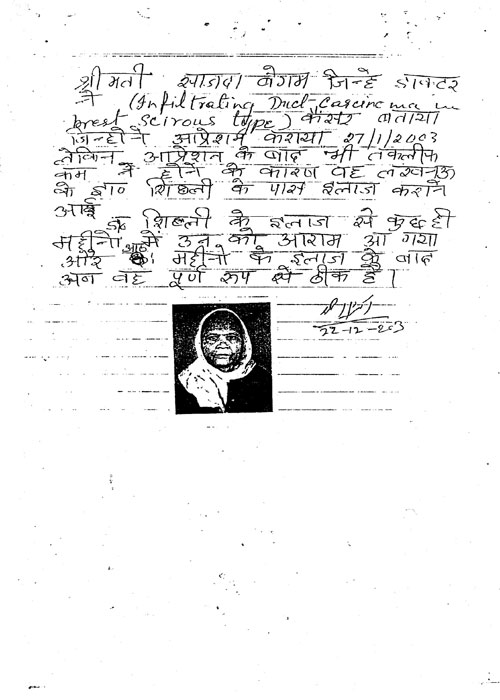 श्रीमती साजदा बेगम जिन्हे डाक्टर
ने (Infiltrating Duct-Carcinoma in
brest scirous type) कैंसर बताया
जिन्होने आप्रेशन कराया 27/1/2003
लेकिन आप्रेशन के बाद भी तकलीफ
कम न होने के कारण वह लखनऊ
के डा० शिब्ली के पास इलाज कराने
आई
डा० शिब्ली के इलाज से कुछ ही
महीनो में उन को आराम आ गया
और आठ महीनो के इलाज के बाद
अब वह पूर्ण रूप से ठीक है।
22-12-203